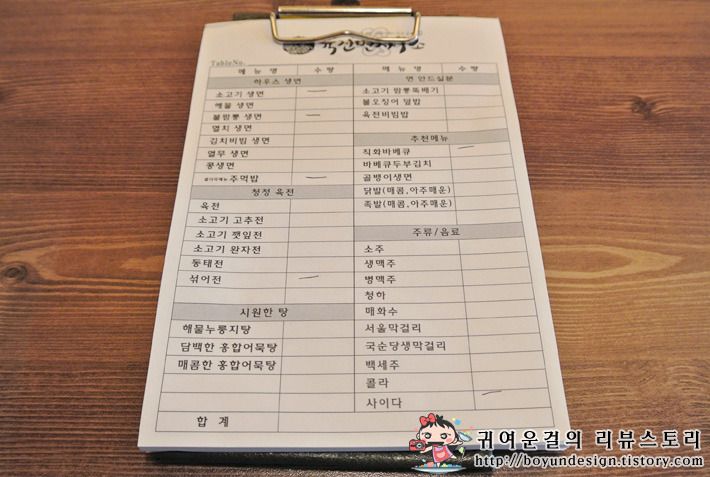 육전면사무소
TableNo.
메 뉴 명 수 량 메 뉴 명 수 량
하우스 생면
소고기 생면
해물 생면
불짬뽕 생면
멸치 생면
김치비빔 생면
열무 생면
콩생면
주먹밥
청정 육전
육전
소고기 고추전
소고기 깻잎전
소고기 완자전
동태전
섞어전
시원한 탕
해물누룽지탕
담백한 홍합어묵탕
매콤한 홍합어묵탕
합 계
면 안드실분
소고기 짬뽕뚝배기
불오징어 덮밥
육전비빔밥
추천메뉴
직화바베큐
바베큐두부김치
골뱅이생면
닭발(매콤,아주매운)
족발(매콤,아주매운)
주류/음료
소주
생맥주
병맥주
청하
매화수
서울막걸리
국순당생막걸리
백세주
콜라
사이다
귀여운걸의 리뷰스토리
http://boyundesign.tistory.com